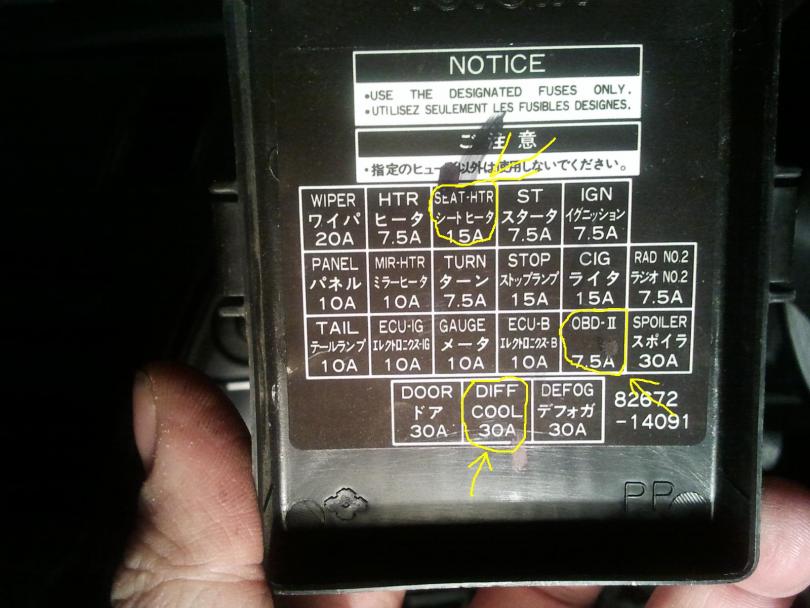 NOTICE
•USE THE DESIGNATED FUSES ONLY.
•UTILISEZ SEULEMENT LES FUSIBLES DESIGNES.
ご注意
・指定のヒューズ以外は使用しないでください。
WIPER HTR SEAT-HTR ST IGN
ワイパ ヒータ シートヒータ スタータ イグニッション
20A 7.5A 15A 7.5A 7.5A
PANEL MIR-HTR TURN STOP CIG RAD NO.2
パネル ミラーヒータ ターン ストップランプ ライタ ラジオ NO.2
10A 10A 7.5A 15A 15A 7.5A
TAIL ECU-IG GAUGE ECU-B OBD-II SPOILER
テールランプ エレクトロニクス-IG メータ エレクトロニクス-B スポイラ
10A 10A 10A 10A 7.5A 30A
DOOR DIFF DEFOG 82672
ドア COOL デフォガ -14091
30A 30A 30A
PP